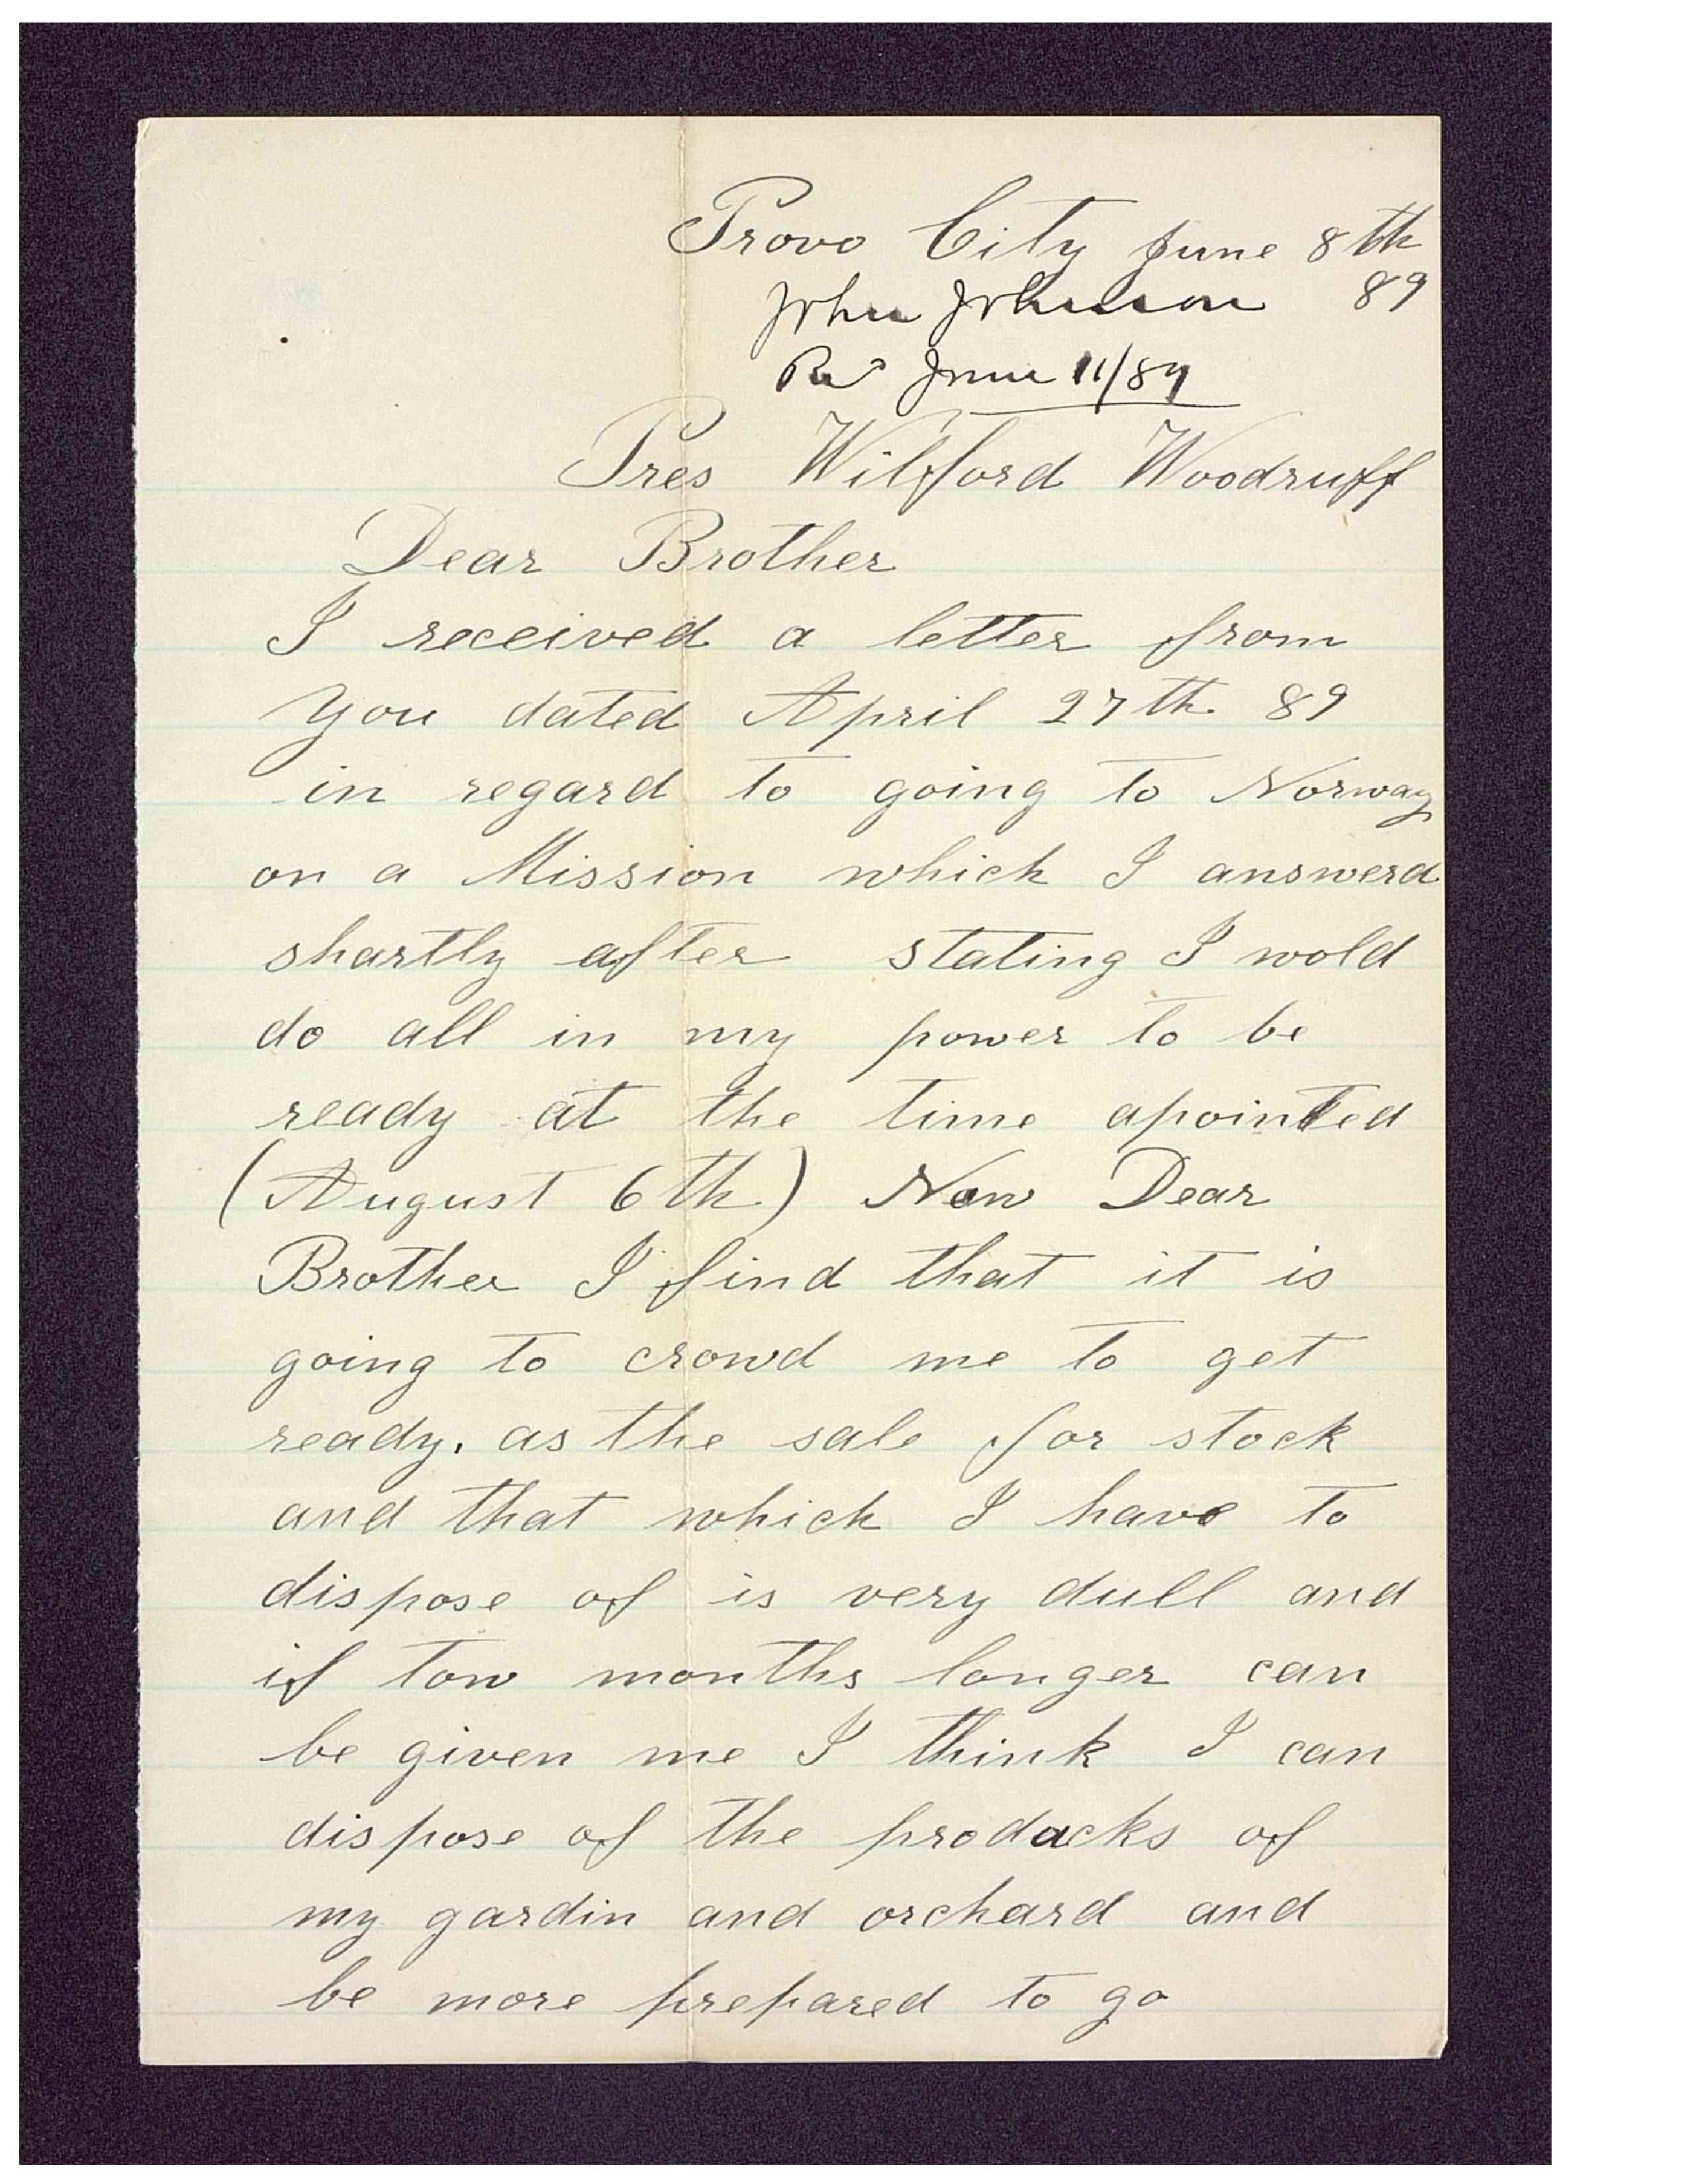 Provo City June 8th
John Johnson 89
Recd June 11/89
Pres Wilford Woodruff
Dear Brother
I received a letter from
you dated April 27th 89
in regard to going to Norway
on a Mission which I answerd
shartly after stating I wold
do all in my power to be
ready at the time apointed
(August 6th) Now Dear
Brother I find that it is
going to crowd me to get
ready, as the sale for stock
and that which I have to
dispose of is very dull and
if tow months longer can
be given me I think I can
dispose of the prodacks of
my gardin and orchard and
be more prepared to go